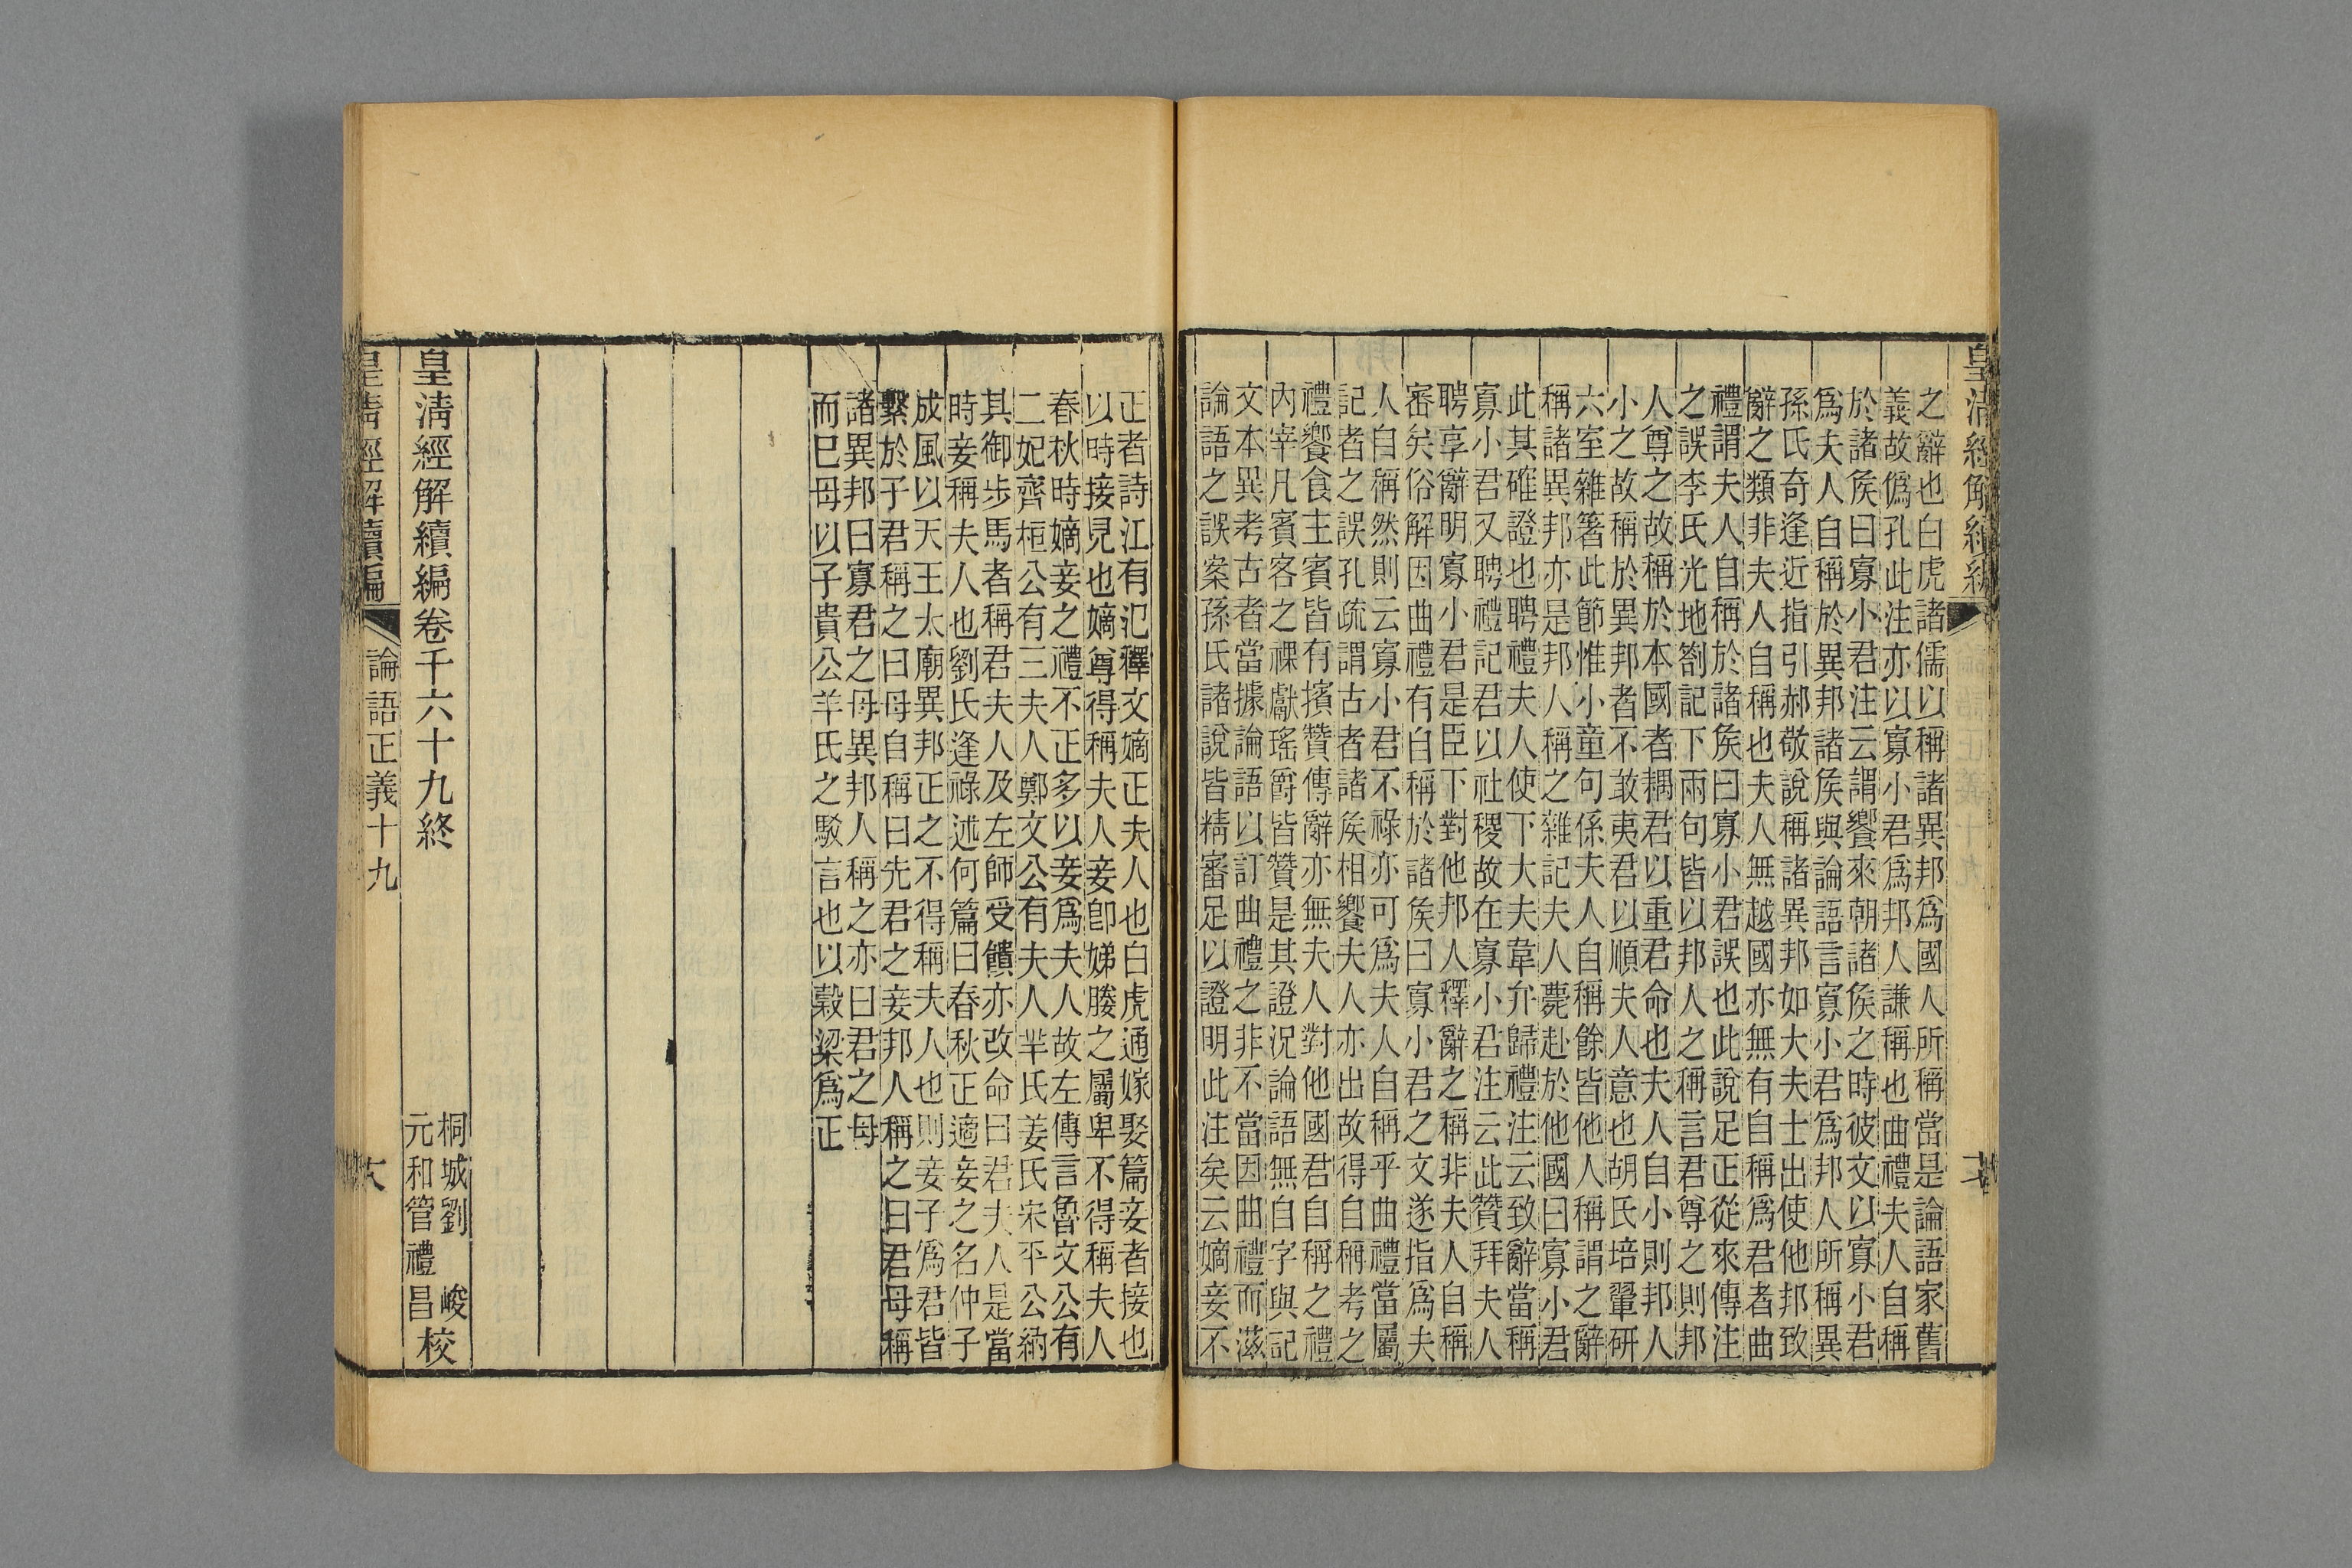 皇清經解續編
之辭也白虎諸儒以稱諸異邦爲國人所稱當是論語家舊
義故僞孔此注亦以寡小君爲邦人謙稱也曲禮夫人自稱
於諸矦曰寡小君注云謂饗來朝諸矦之時彼文以寡小君
爲夫人自稱於異邦諸矦與論語言寡小君爲邦人所稱異
孫氏奇逢近指引郝敬說稱諸異邦如大夫士出使他邦致
辭之類非夫人自稱也夫人無越國亦無有自稱爲君者曲
禮謂夫人自稱於諸矦曰寡小君誤也此說足正從來傳注
之誤李氏光地劄記下兩句皆以邦人之稱言君尊之則邦
人尊之故稱於本國者耦君以重君命也夫人自小則邦人
小之故稱於異邦者不敢夷君以順夫人意也胡氏培翬研
六室雜箸此節惟小童句係夫人自稱餘皆他人稱謂之辭
稱諸異邦亦是邦人稱之雜記夫人薨赴於他國曰寡小君
此其確證也聘禮夫人使下大夫韋弁歸禮注云致辭當稱
寡小君又聘禮記君以社稷故在寡小君注云此贊拜夫人
聘享辭明寡小君是臣下對他邦人釋辭之稱非夫人自稱
審矣俗解因曲禮有自稱於諸矦曰寡小君之文遂指爲夫
人自稱然則云寡小君不祿亦可爲夫人自稱乎曲禮當屬
記者之誤孔疏謂古者諸矦相饗夫人亦出故得自稱考之
禮饗食主賓皆有擯贊傳辭亦無夫人對他國君自稱之禮
內宰凡賓客之祼獻瑤爵皆贊是其證況論語無自字與記
文本異考古者當據論語以訂曲禮之非不當因曲禮而滋
論語之誤案孫氏諸說皆精審足以證明此注矣云嫡妾不
正者詩江有汜釋文嫡正夫人也白虎通嫁娶篇妾者接也
以時接見也嫡尊得稱夫人妾卽娣媵之屬卑不得稱夫人
春秋時嫡妾之禮不正多以妾爲夫人故左傳言魯文公有
二妃齊桓公有三夫人鄭文公有夫人羋氏姜氏宋平公納
其御步馬者稱君夫人及左師受饋亦改命曰君夫人是當
時妾稱夫人也劉氏逢祿述何篇曰春秋正適妾之名仲子
成風以天王太廟異邦正之不得稱夫人也則妾子爲君皆
繫於子君稱之曰母自稱曰先君之妾邦人稱之曰君母稱
諸異邦曰寡君之母異邦人稱之亦曰君之母
而巳母以子貴公羊氏之駁言也以穀梁爲正
皇清經解續編卷千六十九終
桐城劉 峻
元和管禮昌校
皇清經解續編
論語正義十九